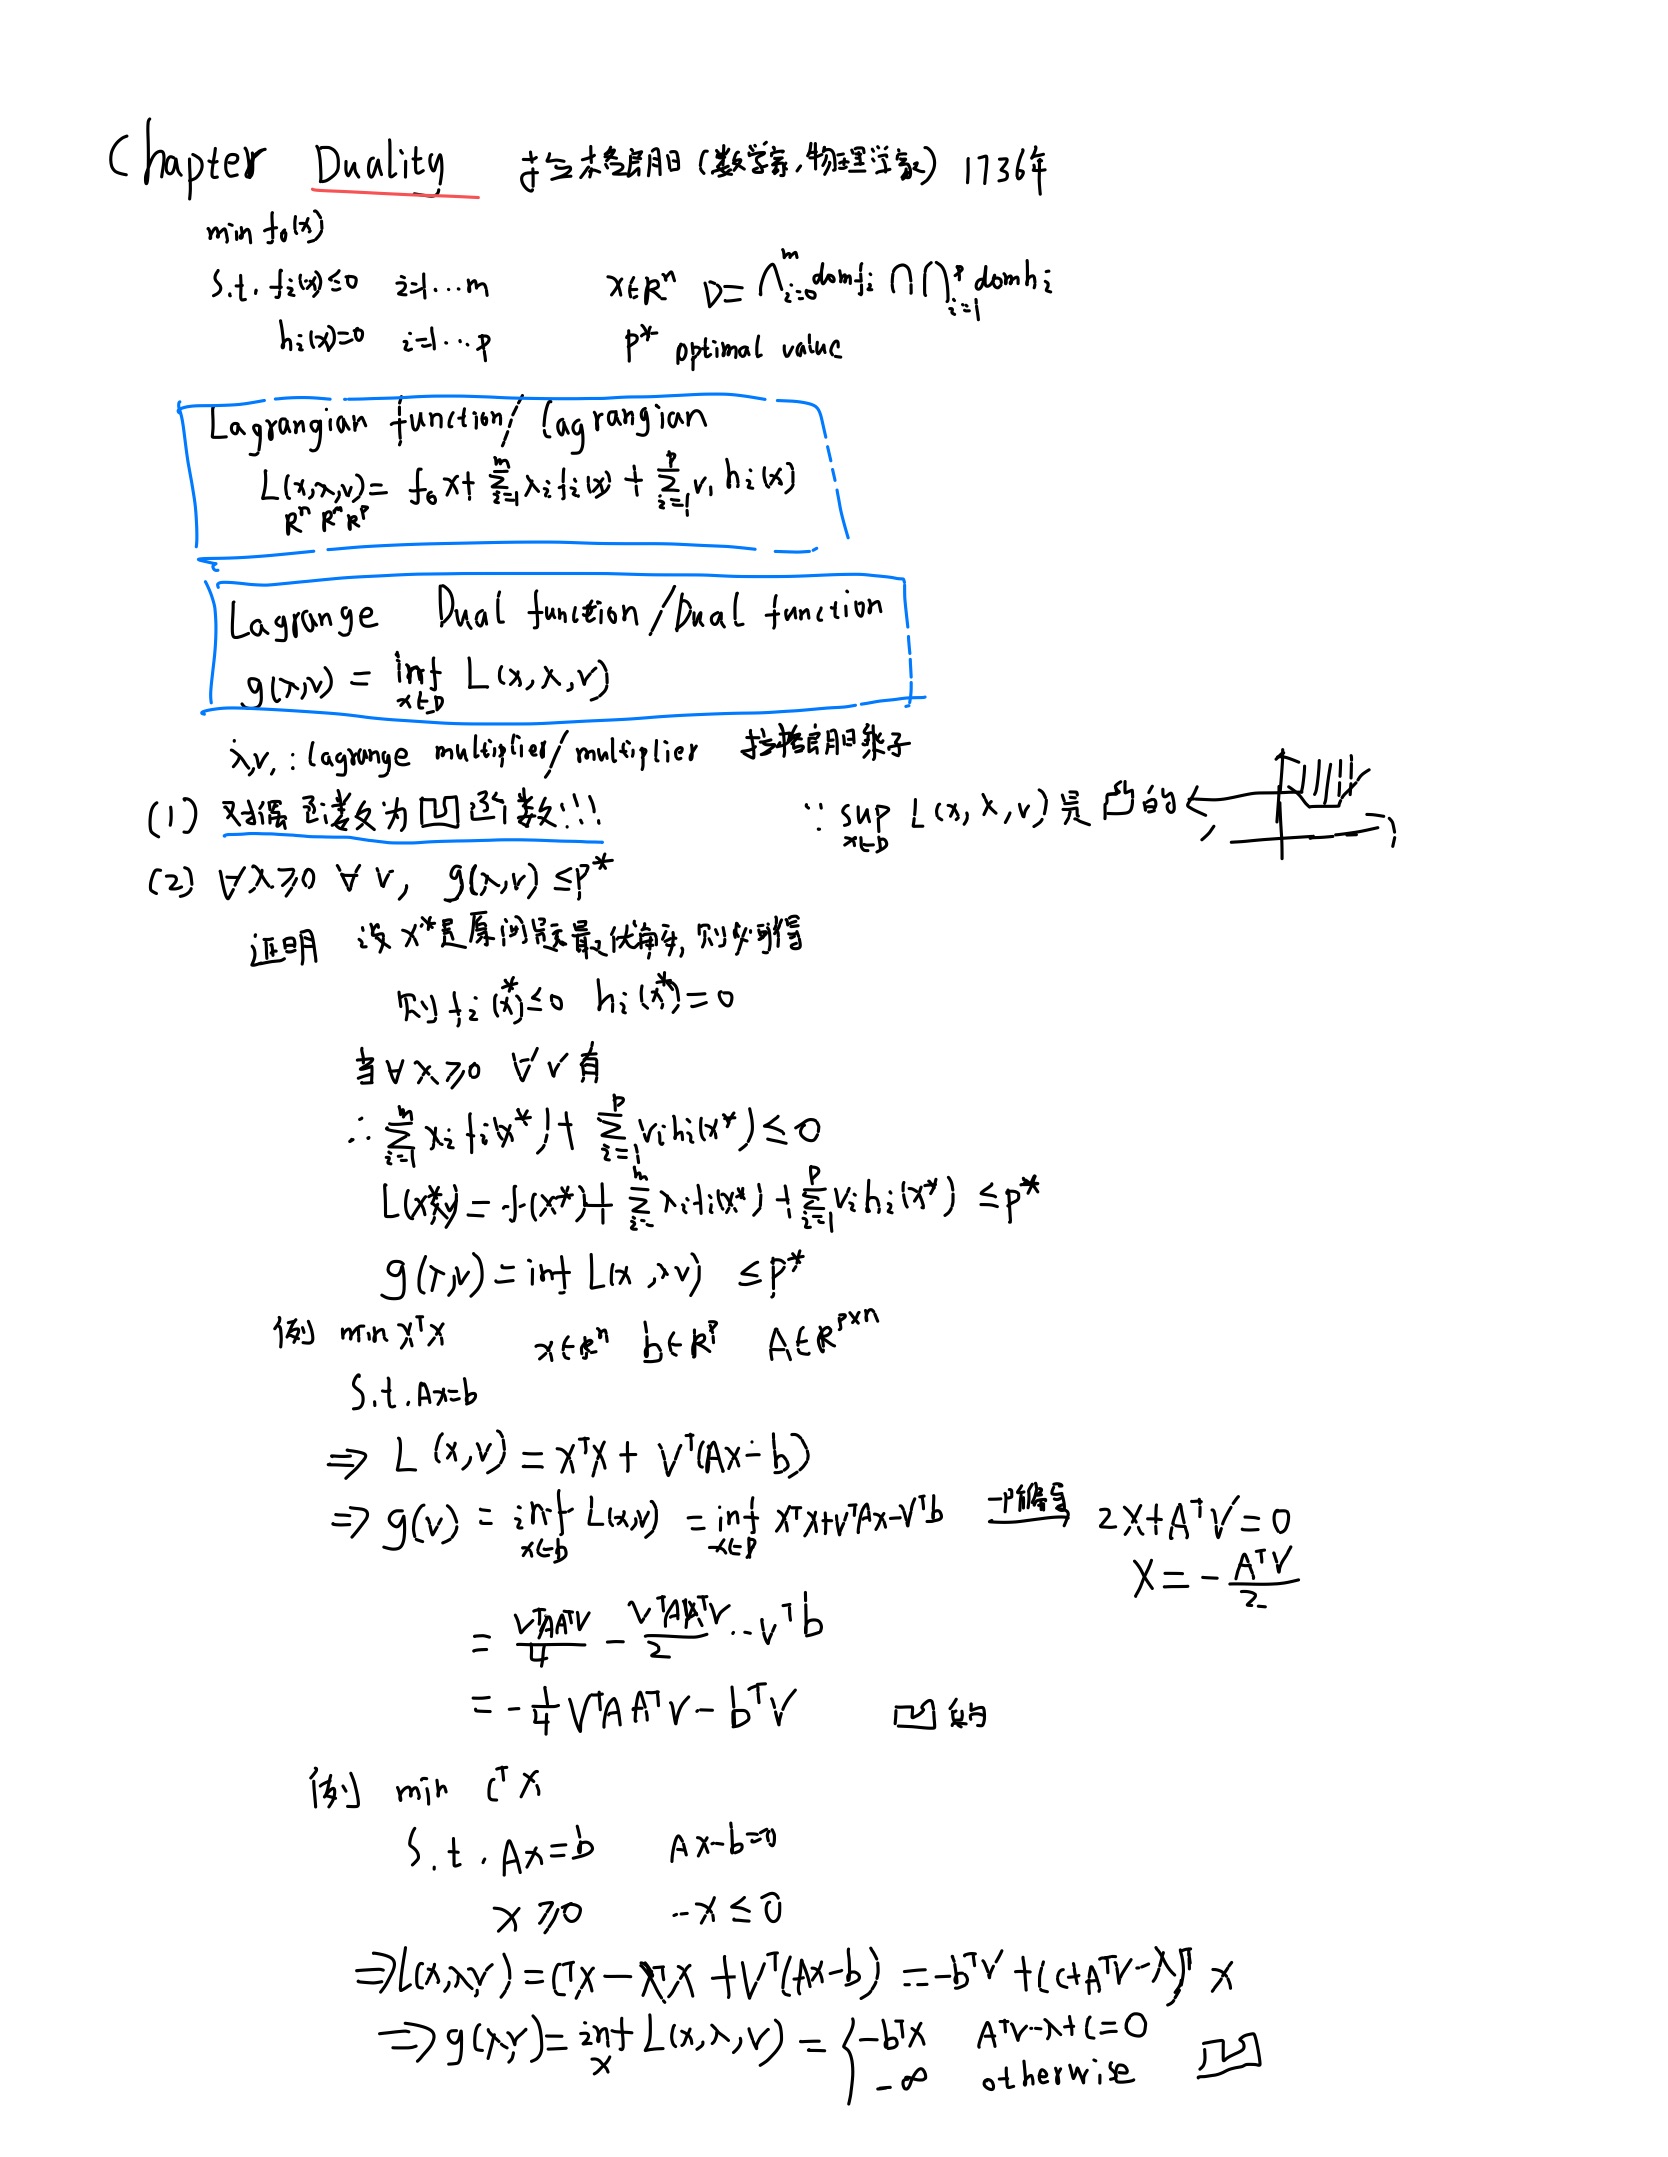 Chapter Duality 拉格朗日(数学家,物理学家) 1736年
min f₀(x)
s.t. fᵢ(x)≤0 i=1…m x∈Rⁿ D=⋂ᵢ₌₀ᵐ domfᵢ ∩ ⋂ᵢ₌₁ᵖ domhᵢ
hᵢ(x)=0 i=1…p p* optimal value
Lagrangian function/lagrangian
L(x,λ,v)= f₀x+ Σᵢ₌₁ᵐ λᵢfᵢ(x) + Σᵢ₌₁ᵖ vᵢ hᵢ(x)
Rⁿ Rᵐ Rᵖ
Lagrange Dual function/Dual function
g(λ,v) = inf_{x∈D} L(x,λ,v)
λ,v,: lagrange multiplier/multiplier 拉格朗日乘子
(1) 对偶函数为凹函数!!! ∵ sup_{x∈D} L(x,λ,v)是凸的
(2) ∀λ≥0 ∀v, g(λ,v)≤p*
证明 设x*是原问题最优解,则必可得
则fᵢ(x*)≤0 hᵢ(x*)=0
当∀λ≥0 ∀v有
∴ Σᵢ₌₁ᵐ λᵢfᵢ(x*)+ Σᵢ₌₁ᵖ vᵢhᵢ(x*)≤0
L(x*,λ,v)=f(x*)+ Σᵢ₌ᵐ λᵢfᵢ(x*)+Σᵢ₌₁ᵖ vᵢhᵢ(x*) ≤p*
g(λ,v)=inf L(x,λv) ≤p*
例 min xᵀx x∈Rⁿ b∈Rᵖ A∈Rᵖˣⁿ
s.t. Ax=b
⇒ L(x,v)=xᵀx+ vᵀ(Ax-b)
⇒ g(v) = inf_{x∈D} L(x,v) = inf_{x∈D} xᵀx+vᵀAx-vᵀb → 2x+Aᵀv=0
x=-\frac{Aᵀv}{2}
= \frac{vᵀAAᵀv}{4} - \frac{vᵀAAᵀv}{2} - vᵀb
= -\frac{1}{4}vᵀAAᵀv-bᵀv 凹的
例 min cᵀx
s.t. Ax=b Ax-b=0
x≥0 -x≤0
⇒L(x,λ,v)=cᵀx-λᵀx+vᵀ(Ax-b) =-bᵀv+(c+Aᵀv-λ)ᵀ x
⇒g(λ,v)=inf_x L(x,λ,v)= { -bᵀx Aᵀv-λ+c=0
-∞ otherwise 凹